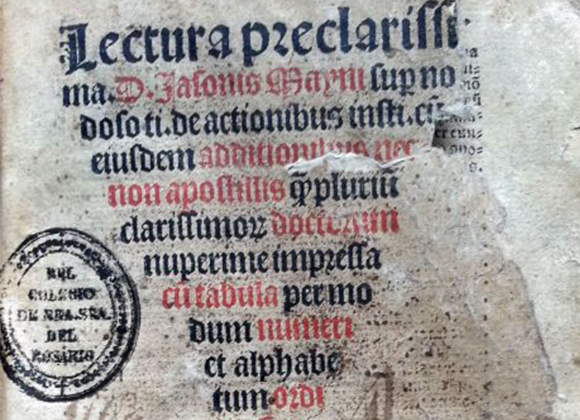 Lectura preclarissi
ma. D. Jasonis Mayni sup no
doso ti. de actionibus insti. cū
eiusdem additionibus nec
non apostillis q̄pluriū
clarissimoꝝ doctorum
nuperrime impressa
cū tabula per mo
dum numeri
et alphabe
tum ordi
DEL
COLEGIO
DE NRA. SRA.
DEL
ROSARIO